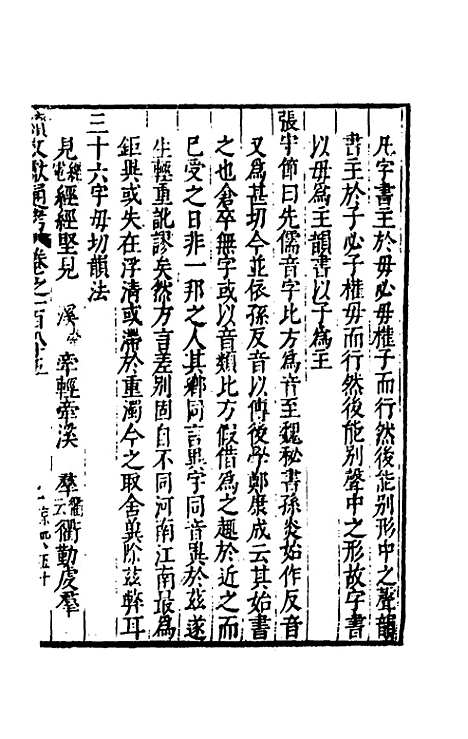 凡字書主於母必母權子而行然後能别形中之聲韻
書主於子必子權母而行然後能别聲中之形故字書
以母為主韻書以子為主
張守節曰先儒音字比方為音至魏秘書孫炎始作反音
又為甚切今並依孫反音以傳後學鄭康成云其始書
之也倉卒無字或以音類比方假借為之趣於近之而
已受之日非一邦之人其鄉同言異字同音異於兹遂
生輕重訛謬矣然方言差别固自不同河南江南最為
鉅異或失在浮清或滯於重濁今之取舍兾除兹弊耳
三十六字母切韻法
見 經經堅見 溪 牽輕牽溪 羣 云衢勤虔羣
續文獻通考 卷之一百八十五